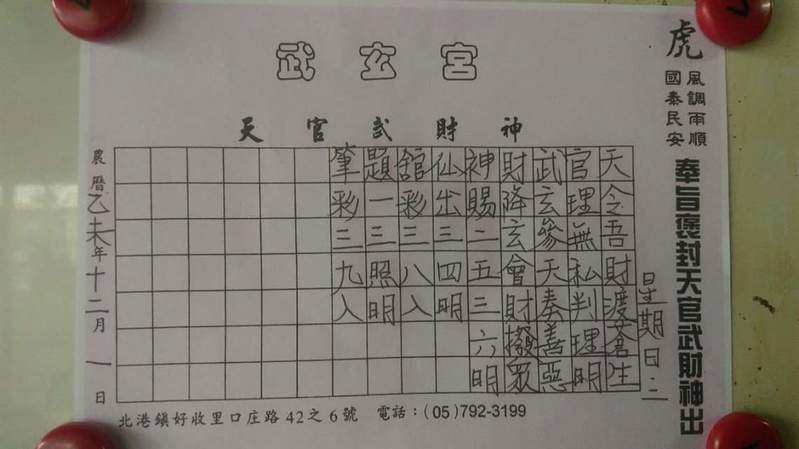 武玄宮
天官武財神
虎
風調雨順
國泰民安
奉旨褒封天官武財神出
星期日:二
天令吾財渡蒼生
官理無私判理明
武玄參天奏善惡
財降玄會財撥眾
神賜二五三六明
仙出三四明
舘彩三八入
題一三照明
筆彩三九入
農曆乙未年十二月一日
北港鎮好收里口庄路42之6號 電話：(05)792-3199